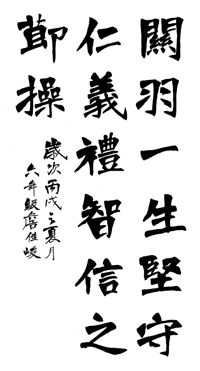 關羽一生堅守
仁義禮智信之
節操
歲次丙戌之夏月
六年級詹佳峻